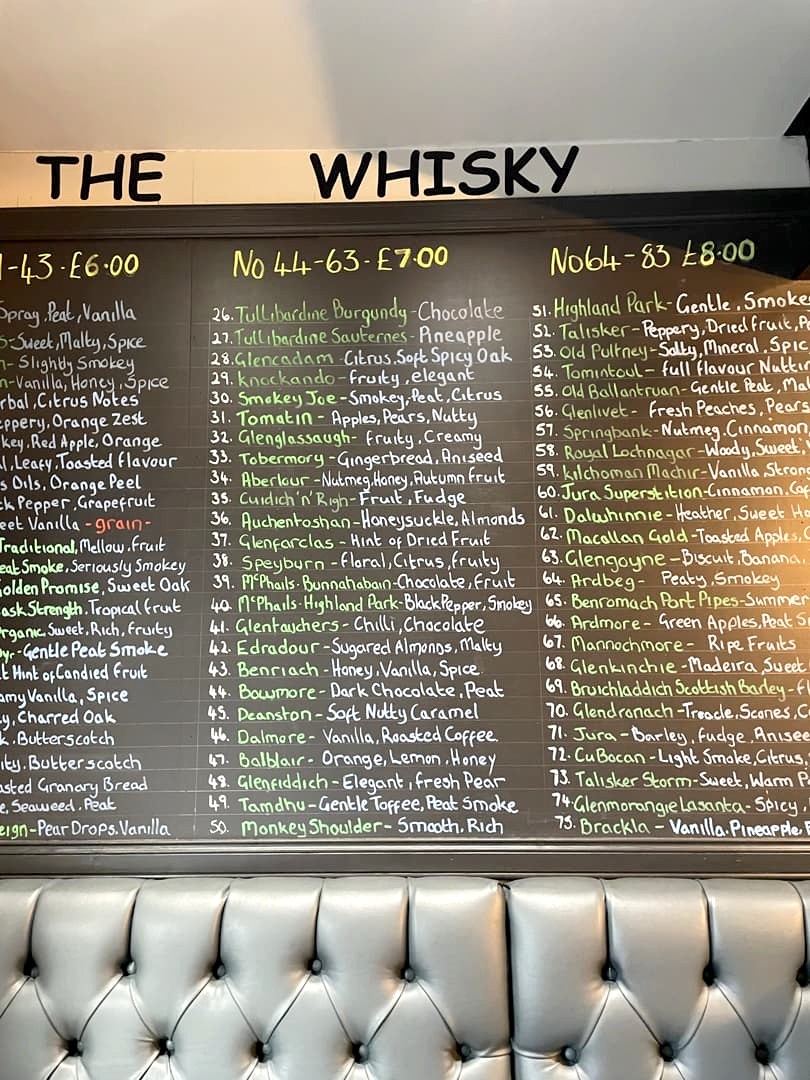 THE WHISKY
-43 · £6·00
Spray, Peat, Vanilla
-Sweet, Malty, Spice
- Slightly Smokey
-Vanilla, Honey, Spice
rbal, Citrus Notes
ppery, Orange Zest
key, Red Apple, Orange
l, Leafy, Toasted flavour
s Oils, Orange Peel
ck Pepper, Grapefruit
eet Vanilla -grain-
Traditional, Mellow, Fruit
eat Smoke, Seriously Smokey
olden Promise, Sweet Oak
ask Strength, Tropical Fruit
rganic, Sweet, Rich, Fruity
y,- Gentle Peat Smoke
t Hint of Candied Fruit
amy Vanilla, Spice
y, Charred Oak
k, Butterscotch
ity, Butterscotch
asted Granary Bread
e, Seaweed, Peat
eign-Pear Drops, Vanilla
No 44-63 - £7·00
26. Tullibardine Burgundy - Chocolate
27. Tullibardine Sauternes - Pineapple
28. Glencadam - Citrus, Soft Spicy Oak
29. Knockando - Fruity, elegant
30. Smokey Joe - Smokey, Peat, Citrus
31. Tomatin - Apples, Pears, Nutty
32. Glenglassaugh - Fruity, Creamy
33. Tobermory - Gingerbread, Aniseed
34. Aberlour - Nutmeg, Honey, Autumn Fruit
35. Cuidich'n'Righ - Fruit, Fudge
36. Auchentoshan - Honeysuckle, Almonds
37. Glenfarclas - Hint of Dried Fruit
38. Speyburn - Floral, Citrus, Fruity
39. McPhails·Bunnahabain - Chocolate, Fruit
40. McPhails·Highland Park - Black Pepper, Smokey
41. Glentauchers - Chilli, Chocolate
42. Edradour - Sugared Almonds, Malty
43. Benriach - Honey, Vanilla, Spice
44. Bowmore - Dark Chocolate, Peat
45. Deanston - Soft Nutty Caramel
46. Dalmore - Vanilla, Roasted Coffee
47. Balblair - Orange, Lemon, Honey
48. Glenfiddich - Elegant, Fresh Pear
49. Tamdhu - Gentle Toffee, Peat Smoke
50. Monkey Shoulder - Smooth, Rich
No 64 - 83 £8·00
51. Highland Park - Gentle, Smoke
52. Talisker - Peppery, Dried Fruit, P
53. Old Pultney - Salty, Mineral, Spic
54. Tomintoul - full flavour Nutti
55. Old Ballantruan - Gentle Peat, Ma
56. Glenlivet - Fresh Peaches, Pears
57. Springbank - Nutmeg, Cinnamon,
58. Royal Lochnagar - Woody, Sweet,
59. Kilchoman Machir - Vanilla, Stron
60. Jura Superstition - Cinnamon, Co
61. Dalwhinnie - Heather, Sweet Ho
62. Macallan Gold - Toasted Apples, C
63. Glengoyne - Biscuit, Banana,
64. Ardbeg - Peaty, Smokey
65. Benromach Port Pipes - Summer
66. Ardmore - Green Apples, Peat S
67. Mannochmore - Ripe Fruits
68. Glenkinchie - Madeira, Sweet
69. Bruichladdich Scottish Barley - Fl
70. Glendronach - Treacle, Scones, C
71. Jura - Barley, Fudge, Anisee
72. Cu Bocan - Light Smoke, Citrus,
73. Talisker Storm - Sweet, Warm P
74. Glenmorangie Lasanta - Spicy,
75. Brackla - Vanilla, Pineapple,